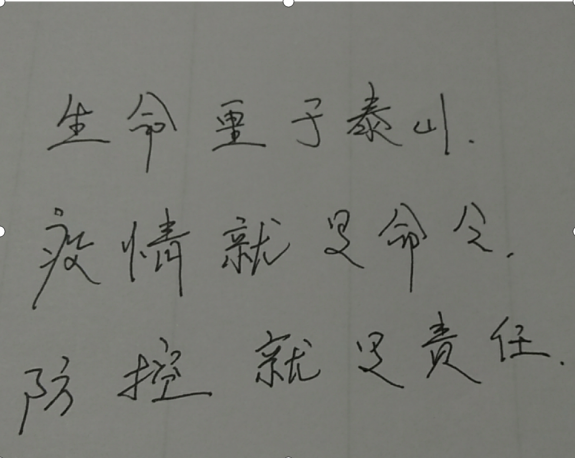 生命重于泰山.
疫情就是命令.
防控就是责任.